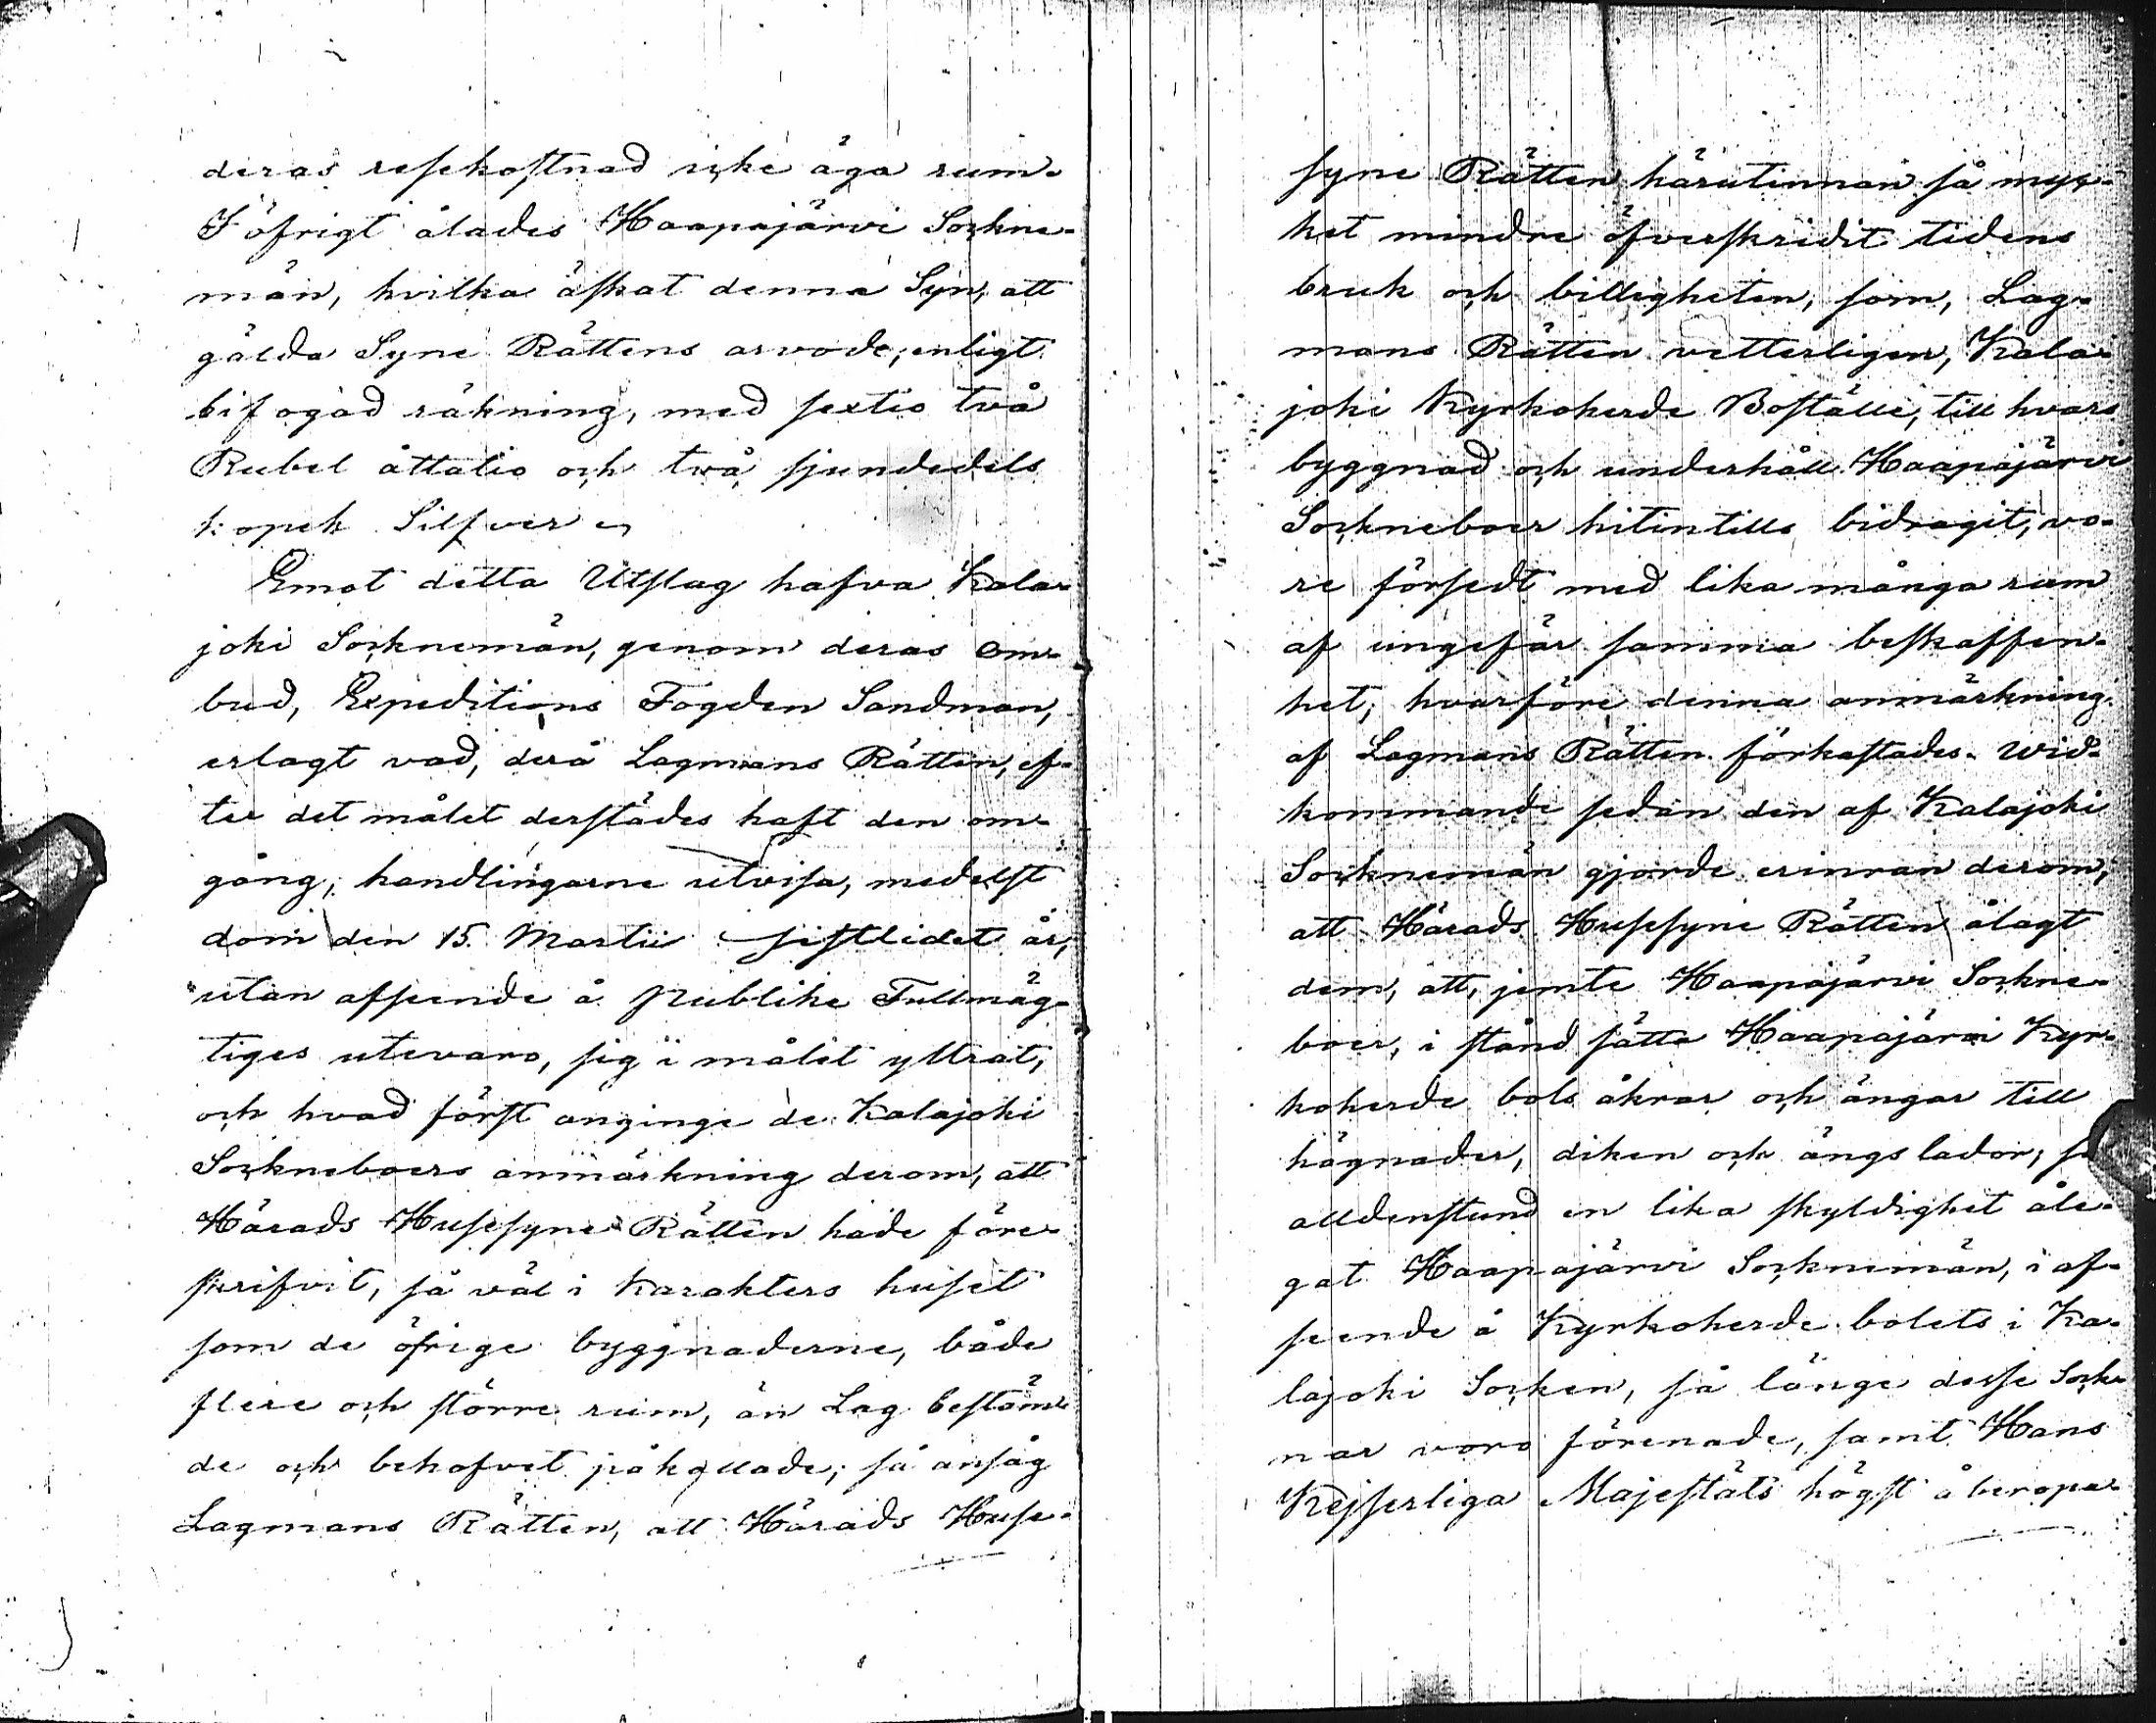 deras resekostnad icke äga rum.
I öfrigt ålades Haapajärvi Sockne-
män, hvilka äskat denna Syn, att
gälda Syne Rättens arvode, enligt
bifogad räkning, med sextio två
Rubel åttatio och två sjundedels
kopek Silfver
Emot detta Utslag hafva Kala-
joki Socknemän, genom deras om-
bud, Expeditions Fogden Sandman,
erlagt vad, derå Lagmans Rätten, ef-
ter det målet derstädes haft den om-
gång, handlingarne utvisa, medelst
dom den 15. Martii sistlidet år,
utan afseende å publike Fullmäg-
tiges utevaro, sig i målet yttrat,
och hvad först anginge de Kalajoki
Sockneboers anmärkning derom, att
Härads Husesyne Rätten hade före-
skrifvit, så väl i Karakters huset
som de öfrige byggnaderne, både
flere och större rum, än Lag bestäm-
de och behofvet påkallade; så ansåg
Lagmans Rätten, att Härads Huse-
syne Rätten härutinnan så myc-
ket mindre öfverskridit tidens
bruk och billigheten, som, Lag-
mans Rätten vetterligen, Kala-
joki Kyrkoherde Boställe, till hvars
byggnad och underhåll Haapajärvi
Sockneboer hitintills bidragit, vo-
re försedt med lika många rum
af ungefär samma beskaffen-
het; hvarföre denna anmärkning
af Lagmans Rätten förkastades. Wid-
kommande sedan den af Kalajoki
Socknemän gjorde erinran derom,
att Härads Husesyne Rätten ålagt
dem, att, jemte Haapajärvi Sockne-
boer, i stånd sätta Haapajärvi Kyr-
koherde bols åkrar och ängar till
hägnader, diken och ängslador; så
alldenstund en lika skyldighet åle-
gat Haapajärvi Socknemän, i af-
seende å Kyrkoherde bolets i Ka-
lajoki Socken, så länge desse Sock-
nar voro förenade, samt Hans
Kejserliga Majestäts högst åberopa-